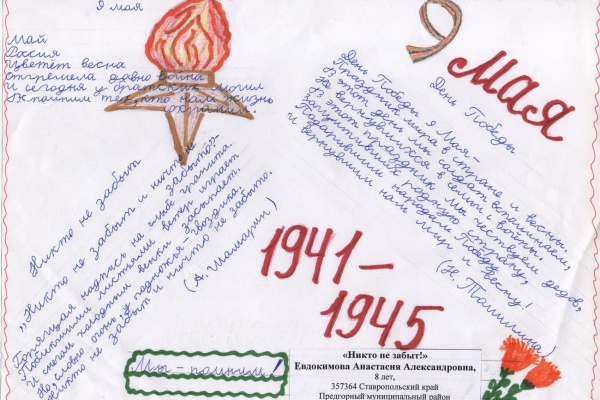 9 мая
Май
Россия
Цветёт весна
Отгремела давно война
И сегодня у братских могил
Вспомним тех, кто нам жизнь
сохранил.
9 МАЯ
День Победы
День Победы 9 Мая –
Праздник мира в стране и весны.
В этот день мы солдат вспоминаем,
Не вернувшихся в семьи с войны.
В этот праздник мы чествуем дедов,
Защитивших родную страну,
Подарившим народам Победу
И вернувшим нам мир и весну!
(Н. Томилина)
Никто не забыт
„Никто не забыт и ничто не
забыто" –
Горящая надпись на глыбе гранита.
Поблекшими листьями ветер играет
И снегом холодным венки засыпает.
Но, словно огонь, у подножья – гвоздика.
Никто не забыт и ничто не забыто.
(А. Шамарин)
1941 –
1945
Мы – помним!
«Никто не забыт!»
Евдокимова Анастасия Александровна,
8 лет,
357364 Ставропольский край
Предгорный муниципальный район